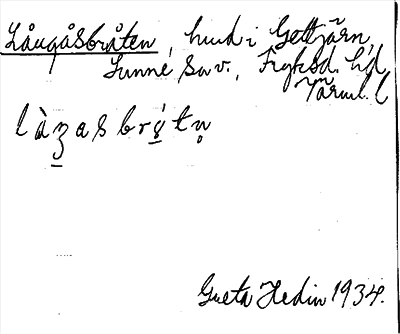 Långåsbråten, hmd i Gettjärn,
Sunne sn v., Fryksd. hd,
Värml. l
làʒasbrǫ́tn̥
Greta Hedin 1934.